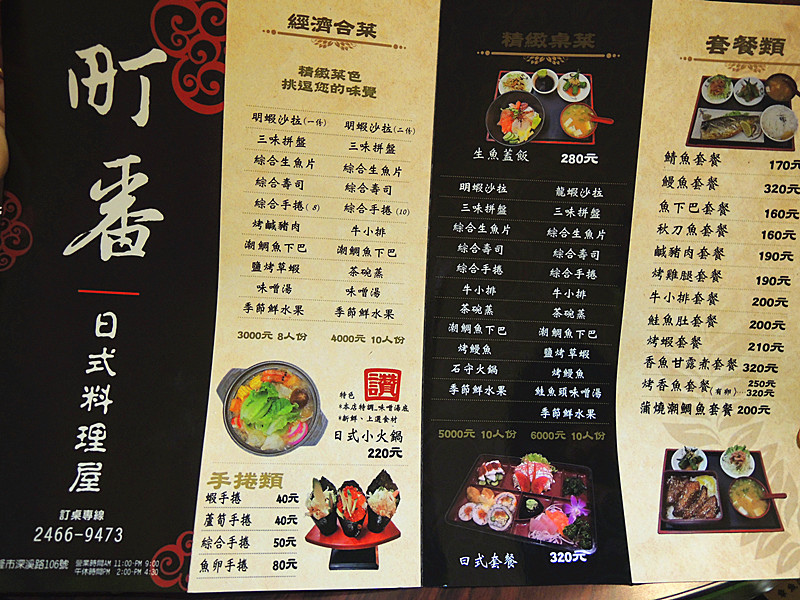 町番
日式料理屋
訂桌專線
2466-9473
市深溪路106號
營業時間AM 11:00-PM 9:00
午休時間PM 2:00-PM 4:30
經濟合菜
精緻菜色
挑逗您的味覺
明蝦沙拉(一份) 明蝦沙拉(二份)
三味拼盤 三味拼盤
綜合生魚片 綜合生魚片
綜合壽司 綜合壽司
綜合手捲(8) 綜合手捲(10)
烤鹹豬肉 牛小排
潮鯛魚下巴 潮鯛魚下巴
鹽烤草蝦 茶碗蒸
味噌湯 味噌湯
季節鮮水果 季節鮮水果
3000元 8人份 4000元 10人份
讚
特色
*本店特調_味噌湯底
*新鮮、上選食材
日式小火鍋
220元
手捲類
蝦手捲 40元
蘆筍手捲 40元
綜合手捲 50元
魚卵手捲 80元
精緻桌菜
生魚蓋飯 280元
明蝦沙拉 龍蝦沙拉
三味拼盤 三味拼盤
綜合生魚片 綜合生魚片
綜合壽司 綜合壽司
綜合手捲 綜合手捲
牛小排 牛小排
茶碗蒸 茶碗蒸
潮鯛魚下巴 潮鯛魚下巴
烤鰻魚 鹽烤草蝦
石守火鍋 烤鰻魚
季節鮮水果 鮭魚頭味噌湯
季節鮮水果
5000元 10人份 6000元 10人份
日式套餐 320元
套餐類
鯖魚套餐 170元
鰻魚套餐 320元
魚下巴套餐 160元
秋刀魚套餐 160元
鹹豬肉套餐 190元
烤雞腿套餐 190元
牛小排套餐 200元
鮭魚肚套餐 200元
烤蝦套餐 210元
香魚甘露煮套餐 320元
烤香魚套餐(有卵) 250元 320元
蒲燒潮鯛魚套餐 200元